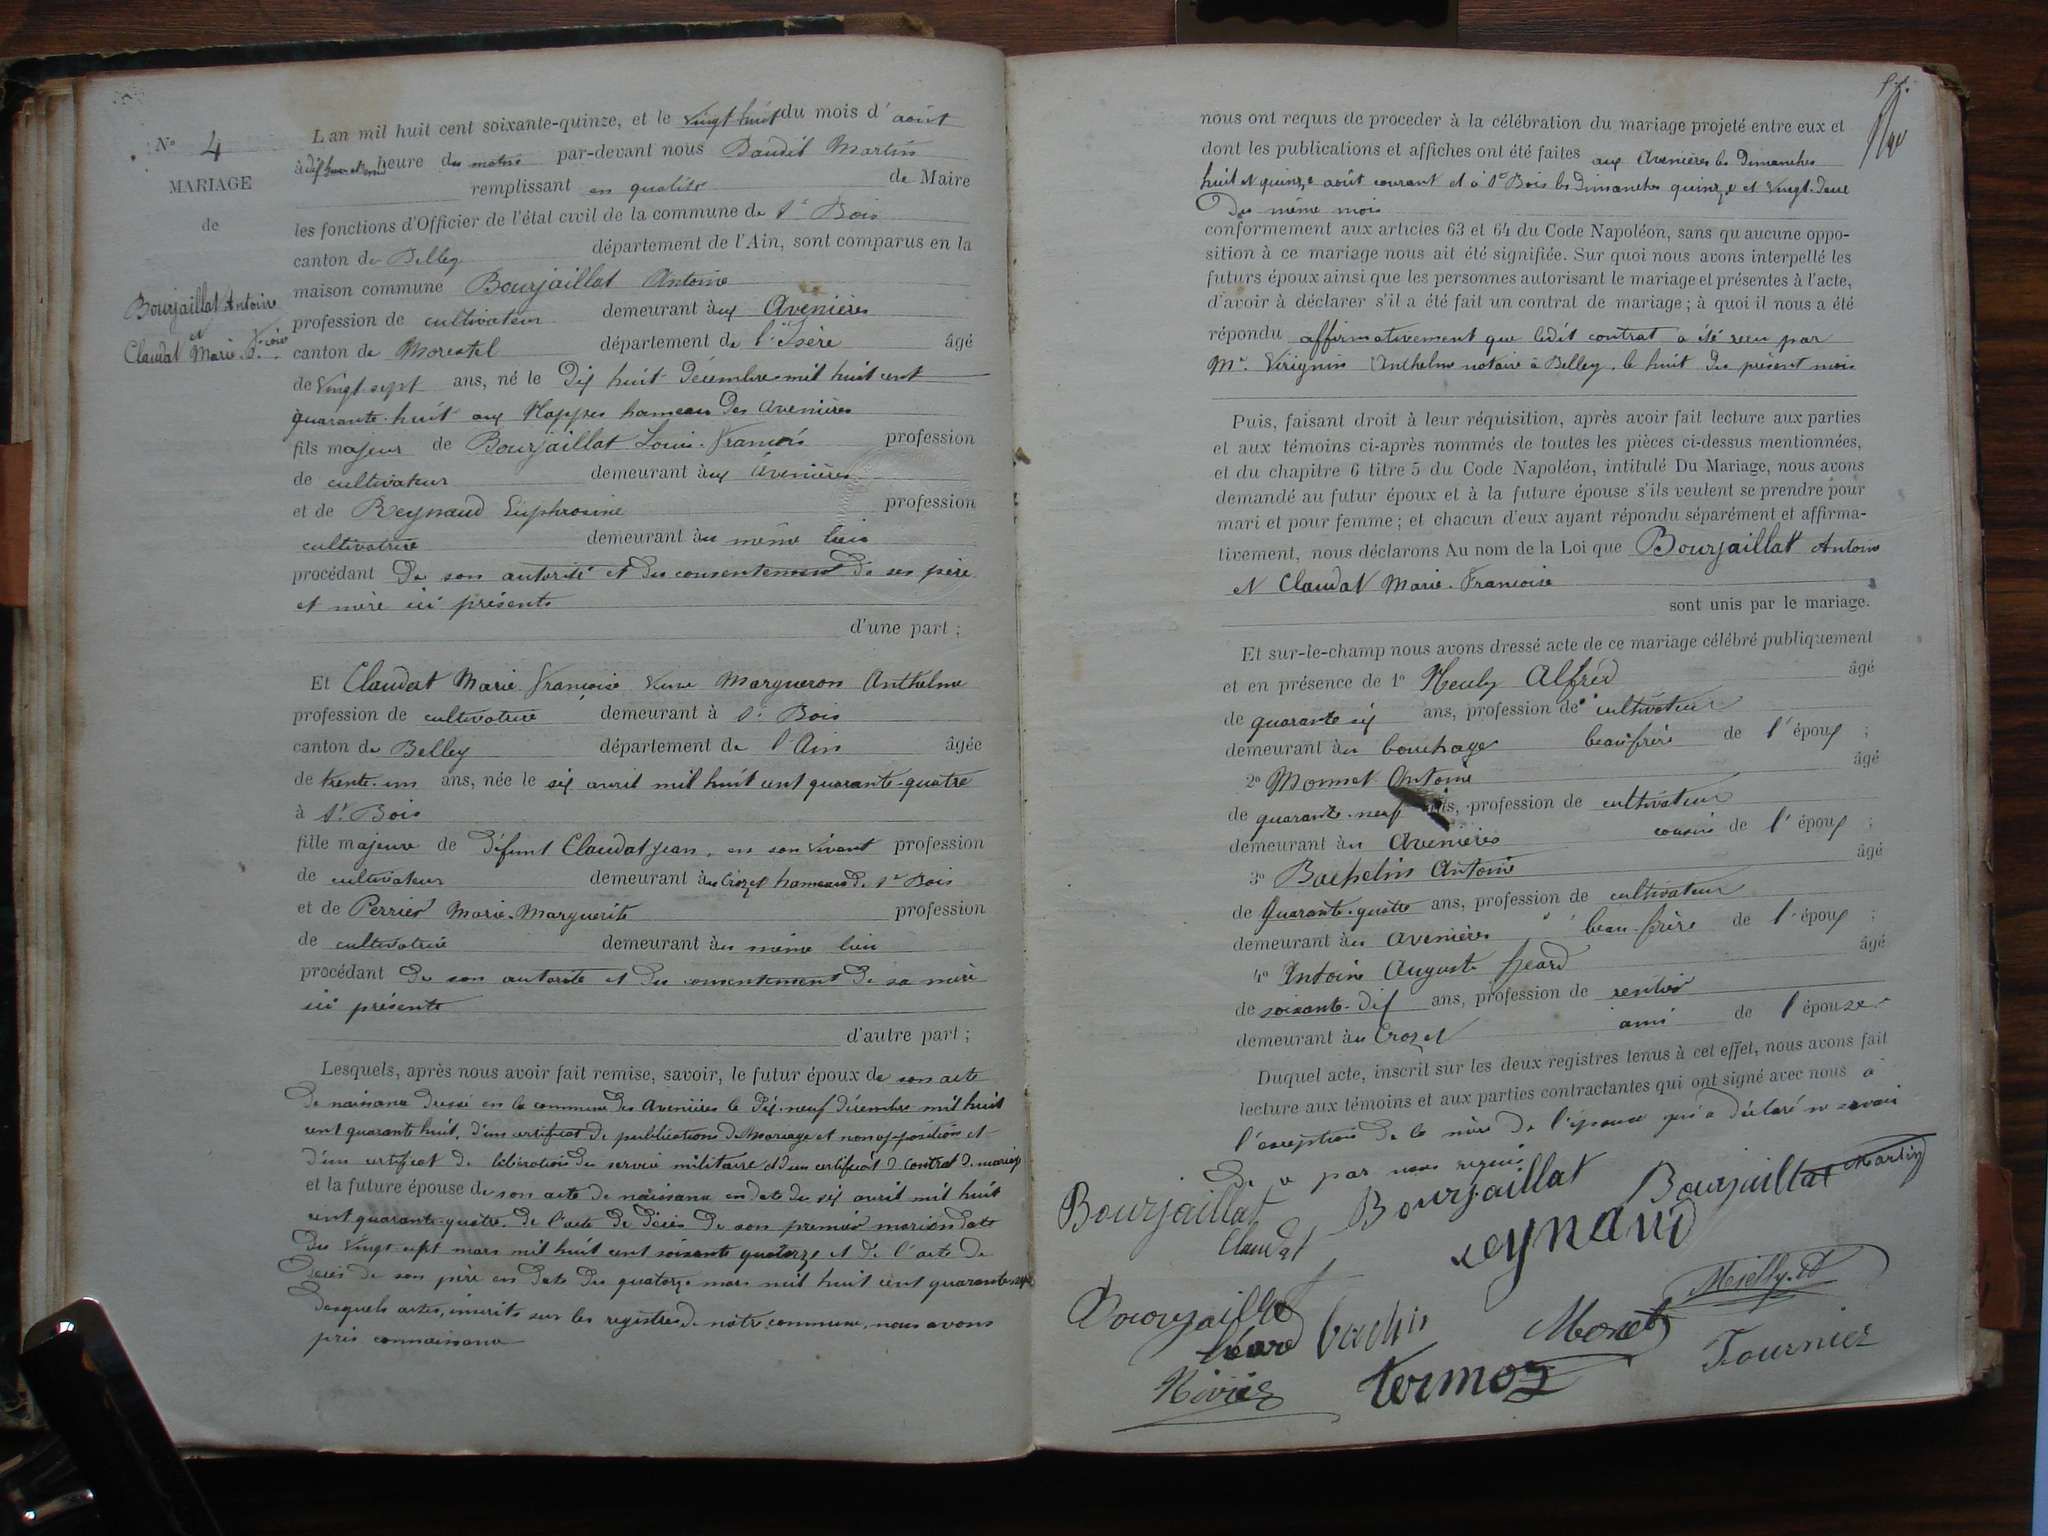 N° 4
MARIAGE
de
Bourjaillat Antoine
et
Claudat Marie
L'an mil huit cent soixante-quinze, et le vingt huit du mois d'août
à heure du matin par-devant nous Martin
remplissant en qualité de Maire
les fonctions d'Officier de l'état civil de la commune de St Bois
canton de Belley département de l'Ain, sont comparus en la
maison commune Bourjaillat Antoine
profession de cultivateur demeurant aux Avenières
canton de Morestel département de l'Isère âgé
de vingt sept ans, né le dix huit décembre mil huit cent
quarante-huit aux hameau des Avenières
fils majeur de Bourjaillat Louis-François profession
de cultivateur demeurant aux Avenières
et de Reynaud Euphrosine profession
cultivatrice demeurant au même lieu
procédant de son autorité et du consentement de ses père
et mère ici présents
d'une part ;
Et Claudat Marie Françoise veuve Margueron Anthelme
profession de cultivatrice demeurant à St Bois
canton de Belley département de l'Ain âgée
de trente-un ans, née le six avril mil huit cent quarante-quatre
à St Bois
fille majeure de défunt Claudat Jean, en son vivant profession
de cultivateur demeurant au Crozet hameau de St Bois
et de Perrier Marie-Marguerite profession
de cultivatrice demeurant au même lieu
procédant de son autorité et du consentement de sa mère
ici présente
d'autre part ;
Lesquels, après nous avoir fait remise, savoir, le futur époux de son acte
de naissance dressé en la commune des Avenières le dix-neuf décembre mil huit
cent quarante huit, d'un certificat de publications de mariage et non opposition et
d'un certificat de libération du service militaire et d'un certificat de contrat de mariage
et la future épouse de son acte de naissance en date du six avril mil huit
cent quarante-quatre, de l'acte de décès de son premier mari en date
du vingt-sept mars mil huit cent soixante quatorze et de l'acte de
décès de son père en date du quatorze mars mil huit cent quarante
desquels actes, inscrits sur les registres de notre commune, nous avons
pris connaissance
nous ont requis de procéder à la célébration du mariage projeté entre eux et
dont les publications et affiches ont été faites aux Avenières les dimanches
huit et quinze août courant et à St Bois les dimanches quinze et vingt-deux
du même mois
conformément aux articles 63 et 64 du Code Napoléon, sans qu'aucune oppo-
sition à ce mariage nous ait été signifiée. Sur quoi nous avons interpellé les
futurs époux ainsi que les personnes autorisant le mariage et présentes à l'acte,
d'avoir à déclarer s'il a été fait un contrat de mariage ; à quoi il nous a été
répondu affirmativement que ledit contrat a été reçu par
Me Virignin Anthelme notaire à Belley, le huit du présent mois
Puis, faisant droit à leur réquisition, après avoir fait lecture aux parties
et aux témoins ci-après nommés de toutes les pièces ci-dessus mentionnées,
et du chapitre 6 titre 5 du Code Napoléon, intitulé Du Mariage, nous avons
demandé au futur époux et à la future épouse s'ils veulent se prendre pour
mari et pour femme ; et chacun d'eux ayant répondu séparément et affirma-
tivement, nous déclarons Au nom de la Loi que Bourjaillat Antoine
et Claudat Marie-Françoise
sont unis par le mariage.
Et sur-le-champ nous avons dressé acte de ce mariage célébré publiquement
et en présence de 1° Alfred âgé
de quarante six ans, profession de cultivateur
demeurant au bouchage beau-frère de l'époux ;
2° Monnet Antoine âgé
de quarante-neuf ans, profession de cultivateur
demeurant au Avenières cousin de l'époux ;
3° Bachelin Antoine âgé
de Quarante-quatre ans, profession de cultivateur
demeurant au Avenières beau-frère de l'époux ;
4° Antoine Auguste âgé
de soixante-dix ans, profession de rentier
demeurant au Crozet ami de l'épouse
Duquel acte, inscrit sur les deux registres tenus à cet effet, nous avons fait
lecture aux témoins et aux parties contractantes qui ont signé avec nous à
l'exception de la mère de l'épouse qui a déclaré ne savoir
de ce par nous requis
Bourjaillat Bourjaillat Bourjaillat Martin
Claudat
Reynaud
Bourjaillat
Monet
Termoz
Fournier